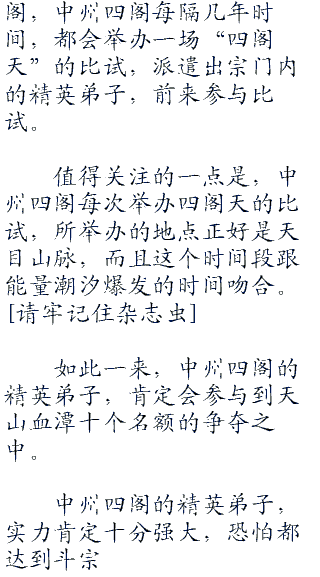 阁，中州四阁每隔几年时
间，都会举办一场“四阁
天”的比试，派遣出宗门内
的精英弟子，前来参与比
试。
值得关注的一点是，中
州四阁每次举办四阁天的比
试，所举办的地点正好是天
目山脉，而且这个时间段跟
能量潮汐爆发的时间吻合。
[请牢记住杂志虫]
如此一来，中州四阁的
精英弟子，肯定会参与到天
山血潭十个名额的争夺之
中。
中州四阁的精英弟子，
实力肯定十分强大，恐怕都
达到斗宗